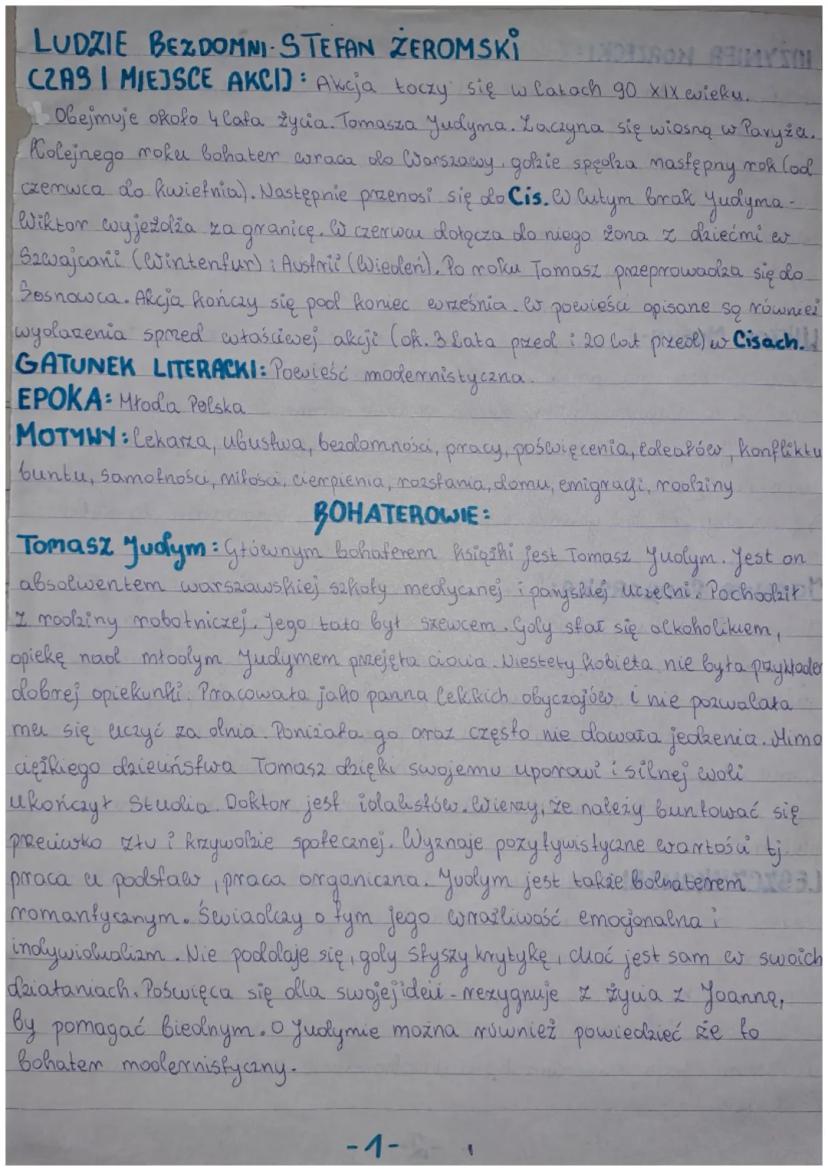 LUDZIE BEZDOMNI - STEFAN ŻEROMSKI
CZAS I MIEJSCE AKCJI: Akcja toczy się w latach 90 XIX wieku.
Obejmuje około 4 lata życia Tomasza Judyma. Zaczyna się wiosną w Paryżu.
Kolejnego roku bohater wraca do Warszawy, gdzie spędza następny rok (od
czerwca do kwietnia). Następnie przenosi się do Cis. W lutym brak Judyma -
Wiktor wyjeżdża za granicę. W czerwcu dołącza do niego żona z dziećmi w
Szwajcarii (Wintenfur) i Austrii (Wiedeń). Po roku Tomasz przeprowadza się do
Sosnowca. Akcja kończy się pod koniec września. W powieści opisane są również
wydarzenia sprzed właściwej akcji (ok. 3 lata przed i 20 lat przed) w Cisach.
GATUNEK LITERACKI: Powieść modernistyczna.
EPOKA: Młoda Polska
MOTYWY: lekarza, ubóstwa, bezdomności, pracy, poświęcenia, ideałów, konfliktu
buntu, samotności, miłości, cierpienia, rozstania, domu, emigracji, rodziny
BOHATEROWIE:
Tomasz Judym: Głównym bohaterem książki jest Tomasz Judym. Jest on
absolwentem warszawskiej szkoły medycznej i paryskiej uczelni. Pochodził
z rodziny robotniczej. Jego tato był szewcem. Gdy stał się alkoholikiem,
opiekę nad młodym Judymem przejęła ciocia. Niestety kobieta nie była przykładem
dobrej opiekunki. Pracowała jako panna lekkich obyczajów i nie pozwalała
mu się uczyć za dnia. Poniżała go oraz często nie dawała jedzenia. Mimo
ciężkiego dzieciństwa Tomasz dzięki swojemu uporowi i silnej woli
ukończył studia. Doktor jest idalistów. Wierzy, że należy buntować się
przeciwko złu i krzywdzie społecznej. Wyznaje pozytywistyczne wartości tj
praca u podstaw, praca organiczna. Judym jest także bohaterem
romantycznym. Świadczy o tym jego wrażliwość emocjonalna i
indywidualizm. Nie poddaje się, gdy słyszy krytykę, choć jest sam w swoich
działaniach. Poświęca się dla swojej ideii - rezygnuje z życia z Joanną,
by pomagać biednym. O Judymie można również powiedzieć że to
bohater modernistyczny.
-1-